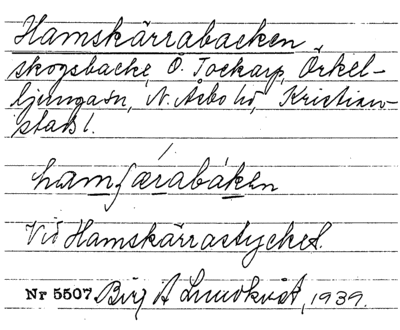 Hamskärrabacken
skogsbacke, Ö. Tockarp, Örkel-
ljungasn, N. Åsbo hd, Kristian-
stads l.
hamʃærabáken
Vid Hamskärrastycket.
Nr 5507 Birg A Lundkvist, 1939.